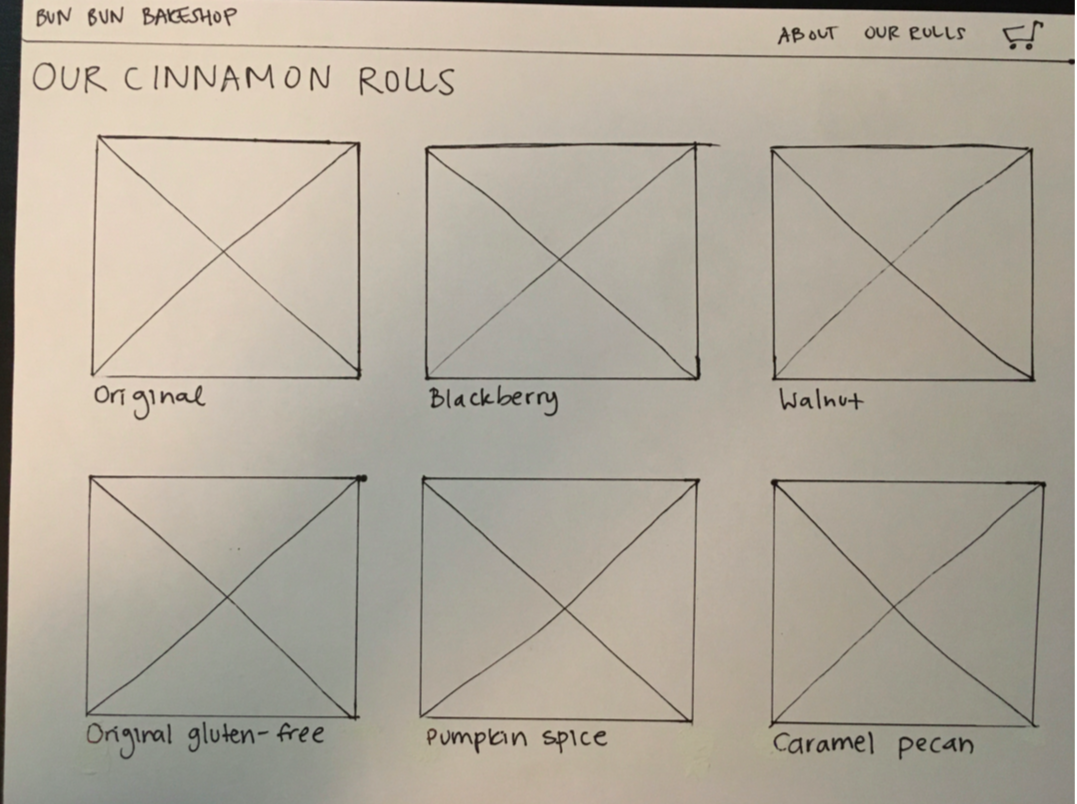 BUN BUN BAKESHOP
ABOUT OUR ROLLS
OUR CINNAMON ROLLS
Original
Blackberry
Walnut
Original gluten-free
Pumpkin spice
Caramel pecan